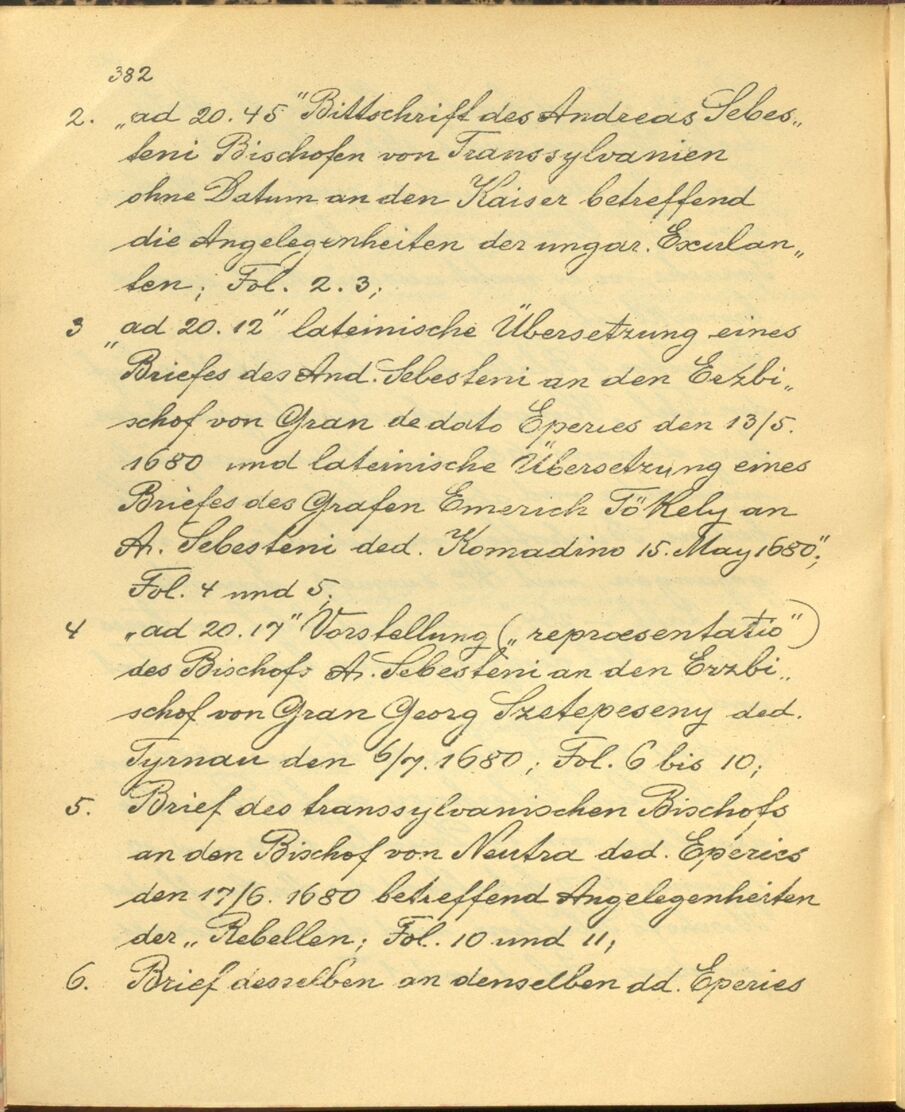 382
2. „ad 20.45" Bittschrift des Andreas Sebes„
teni Bischofen von Transsylvanien
ohne Datum an den Kaiser betreffend
die Angelegenheiten der ungar. Exulan„
ten; Fol. 2.3;
3 „ad 20.12" lateinische Übersetzung eines
Briefes des And. Sebesteni an den Erzbi„
schof von Gran de dato Eperies den 13/5.
1680 und lateinische Übersetzung eines
Briefes des Grafen Emerich Tökely an
A. Sebesteni ded. Komadino 15. May 1680";
Fol. 4 und 5;
4 „ad 20.17" Vorstellung („repraesentatio")
des Bischofs A. Sebesteni an den Erzbi„
schof von Gran Georg Szetepeseny ded.
Tyrnau den 6/7. 1680; Fol. 6 bis 10;
5. Brief des transsylvanischen Bischofs
an den Bischof von Neutra ded. Eperies
den 17/6. 1680 betreffend Angelegenheiten
der „Rebellen; Fol. 10 und 11;
6. Brief desselben an denselben dd. Eperies